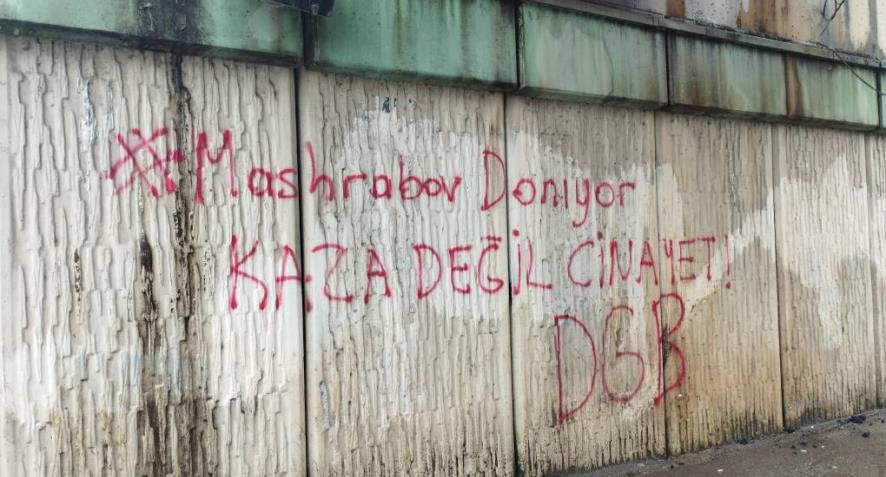 Mashrabov Doniyor
KAZA DEĞİL CİNAYET!
DGB